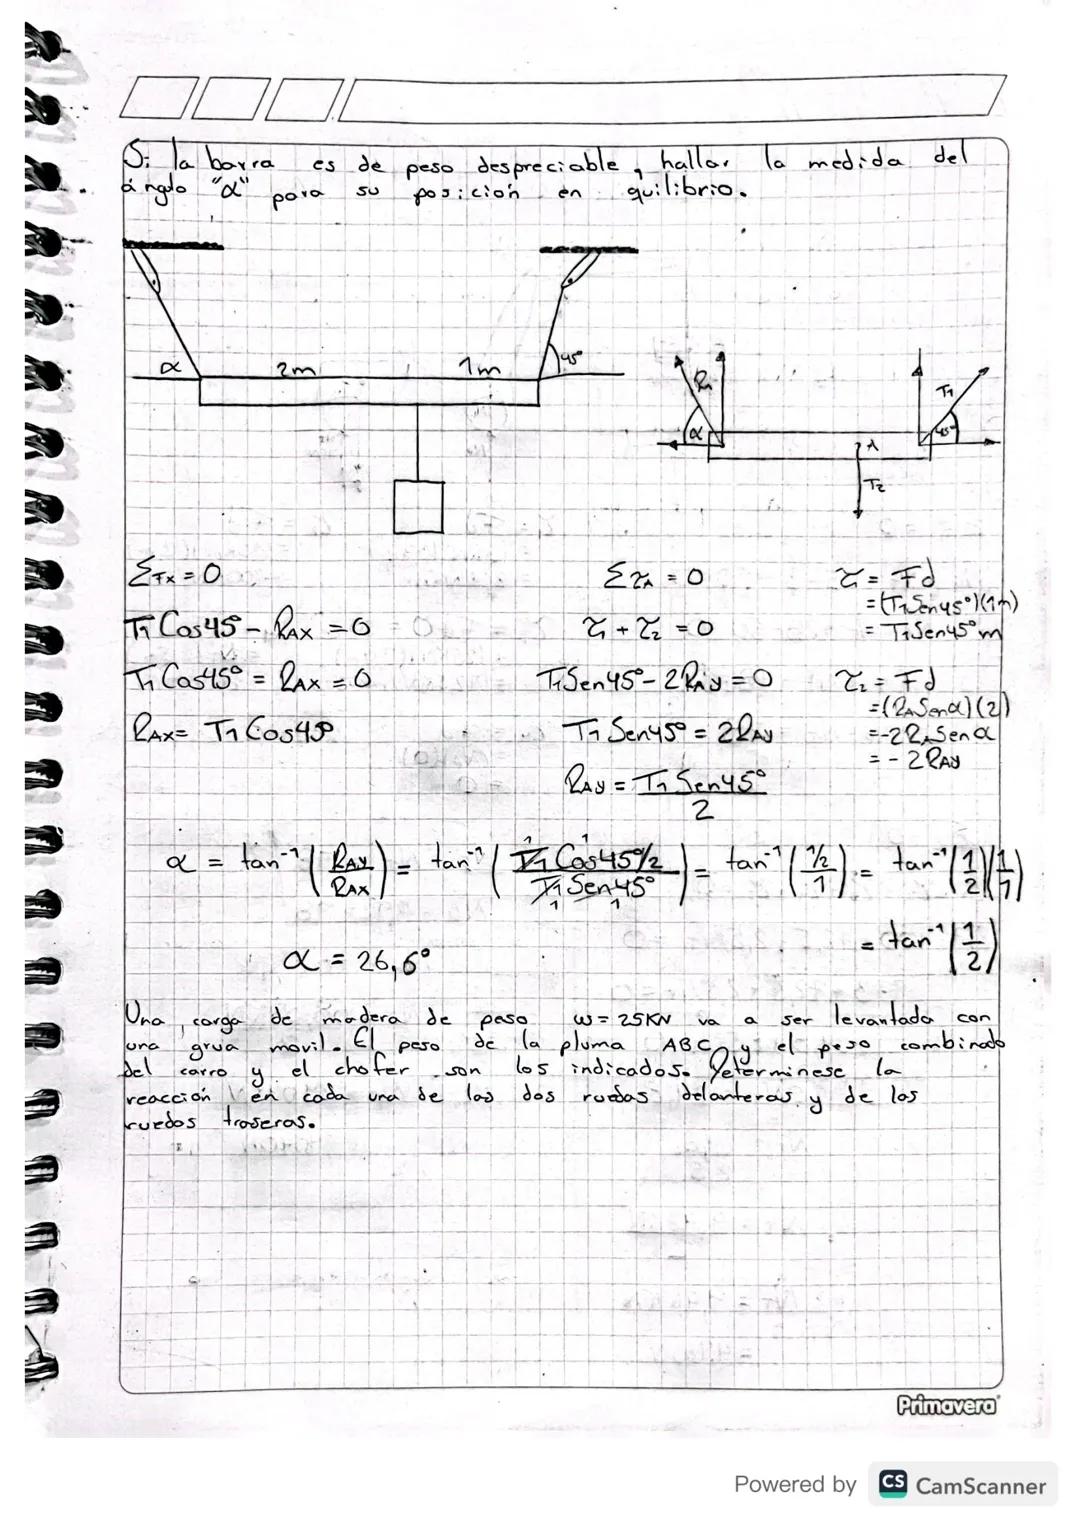 Si la barra es de peso despreciable, hallar la medida del
ángulo "α" para su posición en quilibrio.
α 2m 1m 45°
R₁ α T₁ 45° A T₂
ΣFx = 0
T₁ Cos45 - RAx = 0
T₁ Cos45° = RAx = 0
RAx = T₁ Cos45°
ΣτA = 0
τ₁ + τ₂ = 0
T₁Sen45° - 2RAy = 0
T₁ Sen45° = 2RAy
RAy = T₁ Sen45° / 2
τ₁ = Fd
= (T₁Sen45°)(1m)
= T₁Sen45° m
τ₂ = Fd
= (RASenα)(2)
= -2RASenα
= -2RAy
α = tan⁻¹ (RAy / RAx) = tan⁻¹ (T₁ Cos45°/2 / T₁ Sen45°) = tan⁻¹ (1/2 / 1) = tan⁻¹ (1/2)(1/1)
= tan⁻¹ (1/2)
α = 26,6°
Una carga de madera de peso w = 25KN va a ser levantada con
una grua movil. El peso de la pluma ABC y el peso combinado
del carro y el chofer son los indicados. Determinese la
reacción en cada una de las dos ruedas delanteras y de los
ruedos traseras.
Primavera
Powered by CS CamScanner